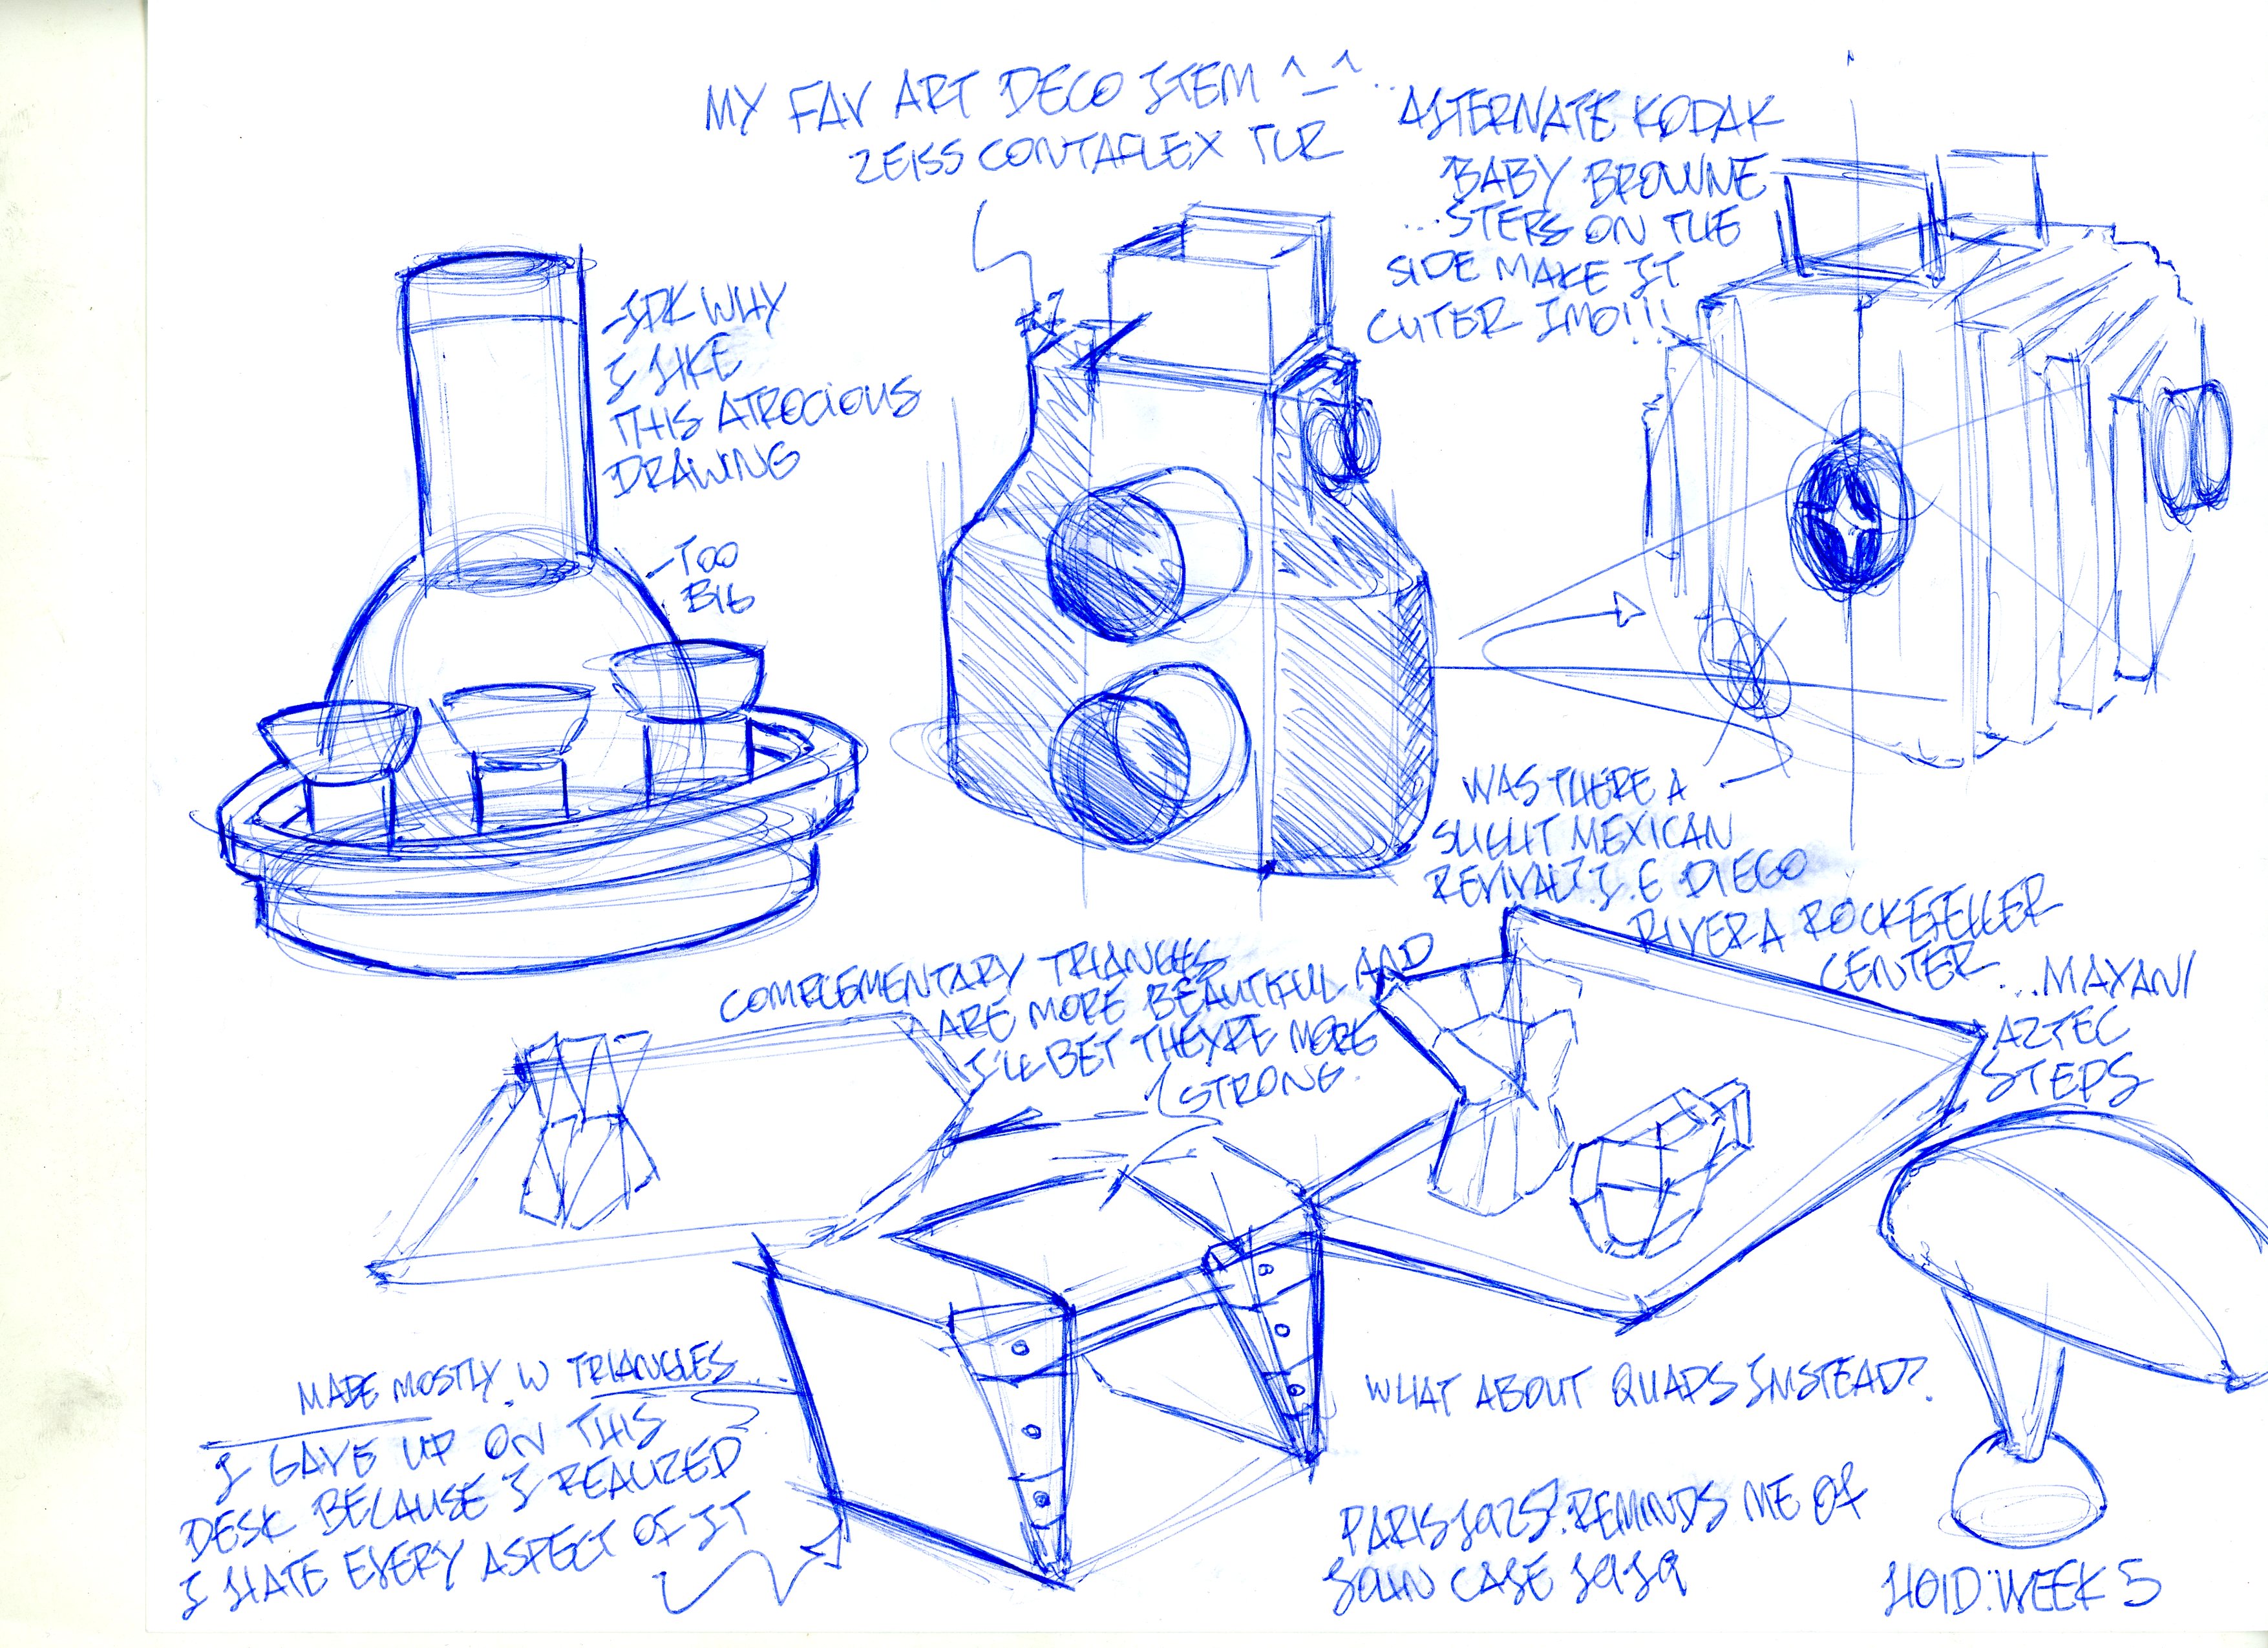 MY FAV ART DECO ITEM ^_^...
ZEISS CONTAFLEX TLR
ALTERNATE KODAK
BABY BROWNIE
...STEPS ON THE
SIDE MAKE IT
CUTER IMO!!!
-IDK WHY
I LIKE
THIS ATROCIOUS
DRAWING
-TOO
BIG
WAS THERE A
SLIGHT MEXICAN
REVIVAL? I.E DIEGO
RIVERA ROCKEFELLER
CENTER ...MAYAN/
AZTEC
STEPS
COMPLEMENTARY TRIANGLES
ARE MORE BEAUTIFUL AND
I'LL BET THEY'RE MORE
STRONG.
MADE MOSTLY W TRIANGLES...
I GAVE UP ON THIS
DESK BECAUSE I REALIZED
I HATE EVERY ASPECT OF IT
WHAT ABOUT QUADS INSTEAD?
PARIS 1925? REMINDS ME OF
CASE 1919
HOID: WEEK 5